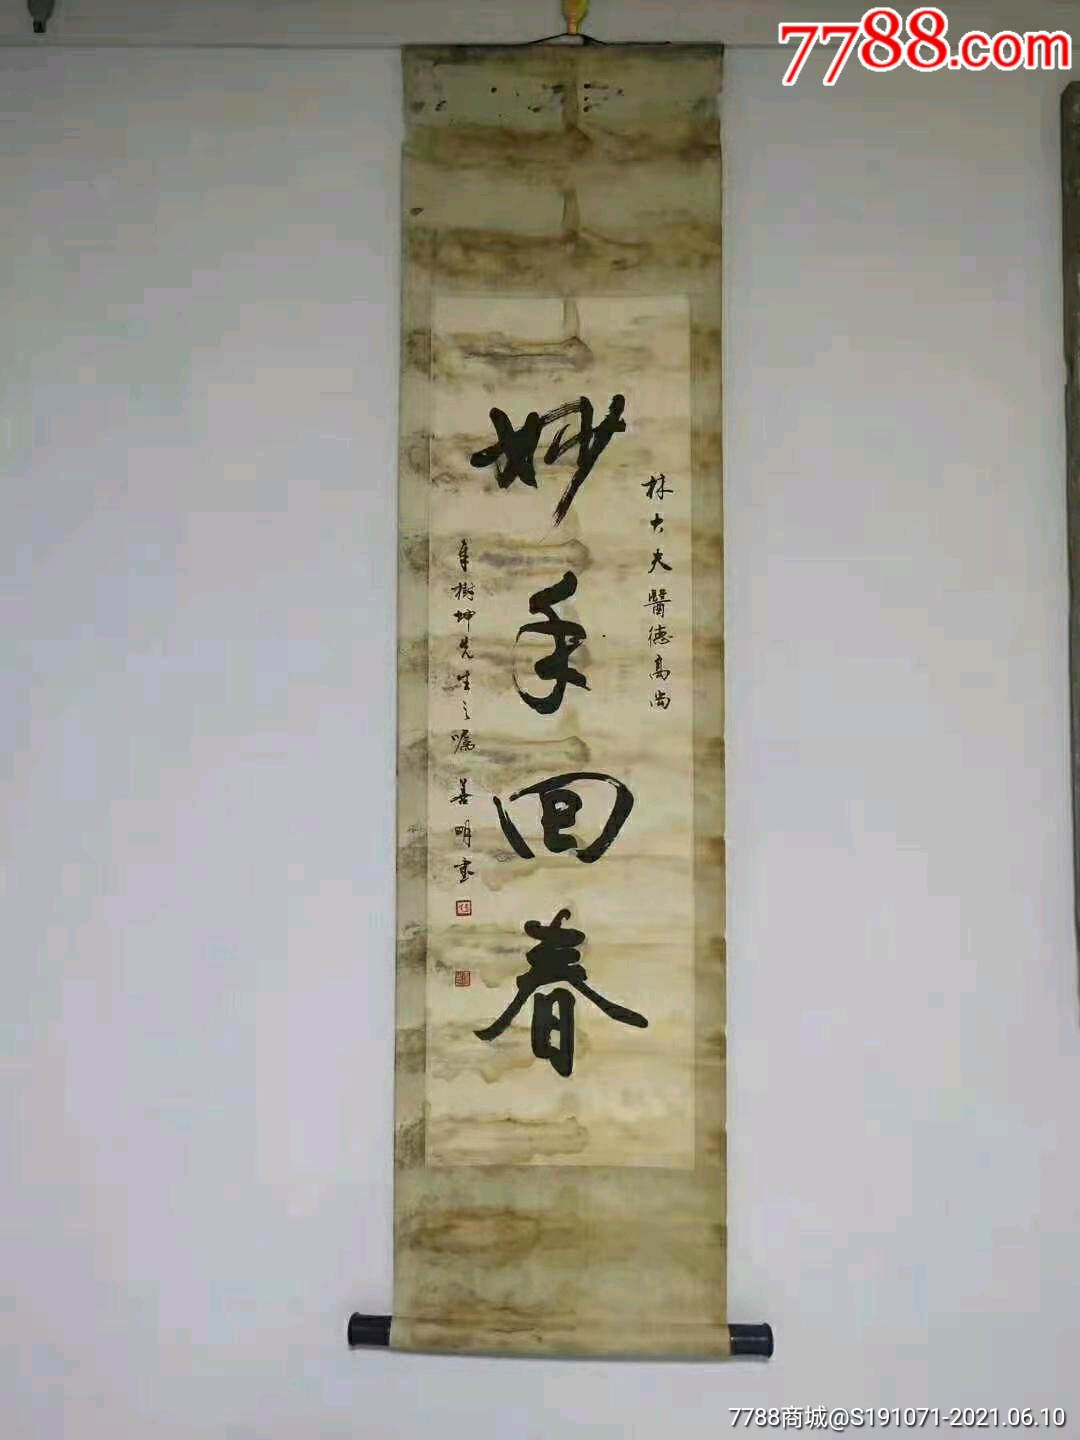 7788.com
林大夫醫德高尚
妙手回春
樹坤先生之嘱 善明書
7788商城@S191071-2021.06.10